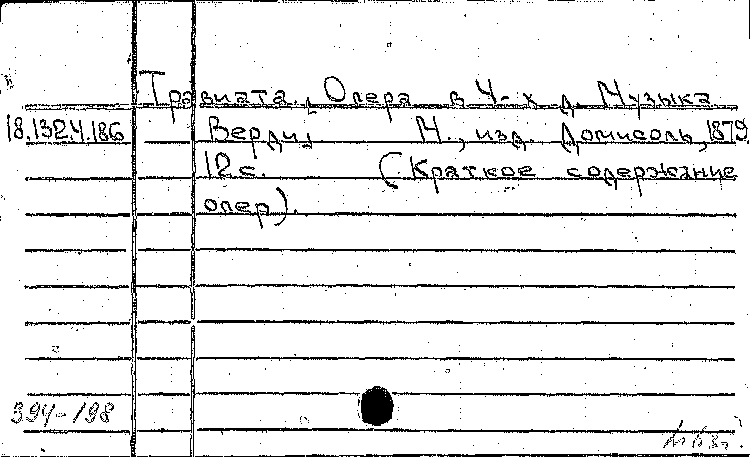 Травиата. Опера в 4-х д. Музыка
18.132.4.186 Верди, М., изд. Домисоль, 1879.
12 с. (Краткое содержание
опер).
394-198